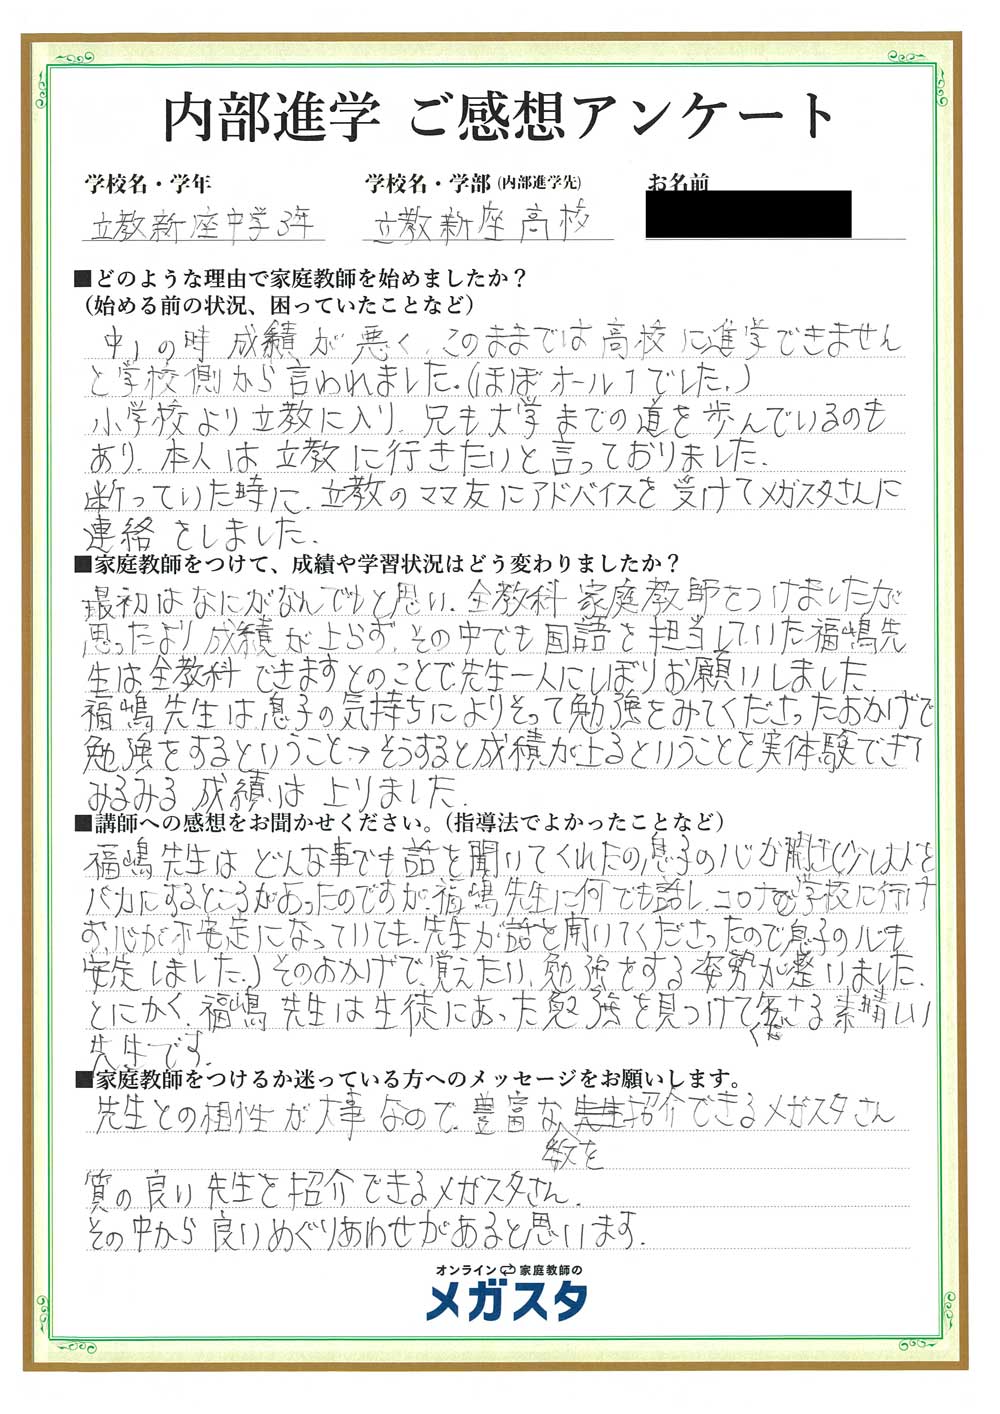 内部進学 ご感想アンケート
学校名・学年 学校名・学部(内部進学先) お名前
立教新座中学3年 立教新座高校
■どのような理由で家庭教師を始めましたか？
(始める前の状況、困っていたことなど)
中1の時 成績が悪く、このままでは高校に進学できません
と学校側から言われました。(ほぼオール1でした。)
小学校より立教に入り、兄も大学までの道を歩んでいるのも
あり、本人は立教に行きたいと言っておりました。
っていた時に、立教のママ友にアドバイスを受けてメガスタさんに
連絡をしました。
■家庭教師をつけて、成績や学習状況はどう変わりましたか？
最初はなにがなんでもと思い、全教科 家庭教師をつけましたが
思ったより成績が上らず、その中でも国語を担当していた福嶋先
生は全教科できますとのことで先生一人にしぼりお願いしました
福嶋先生は息子の気持ちによりそって勉強をみてくださったおかげで
勉強をするということ→そうすると成績が上るということを実体験できて
みるみる成績は上りました。
■講師への感想をお聞かせください。(指導法でよかったことなど)
福嶋先生はどんな事でも話を聞いてくれたの息子の心が開き(少し大人を
バカにするところがあったのですが、福嶋先生に何でも話し、コロナで学校に行け
ず、心が不安定になっていても、先生が話を聞いてくださったので息子の心も
安定しました。)そのおかげで、覚えたい、勉強をする姿勢が整いました。
とにかく、福嶋先生は生徒にあった勉強を見つけて下さる素晴しい
くだ
先生です。
■家庭教師をつけるか迷っている方へのメッセージをお願いします。
先生との相性が大事なので、豊富な先生紹介できるメガスタさん
数を
質の良い先生を紹介できるメガスタさん。
その中から良いめぐりあわせがあると思います。
オンライン 家庭教師の
メガスタ